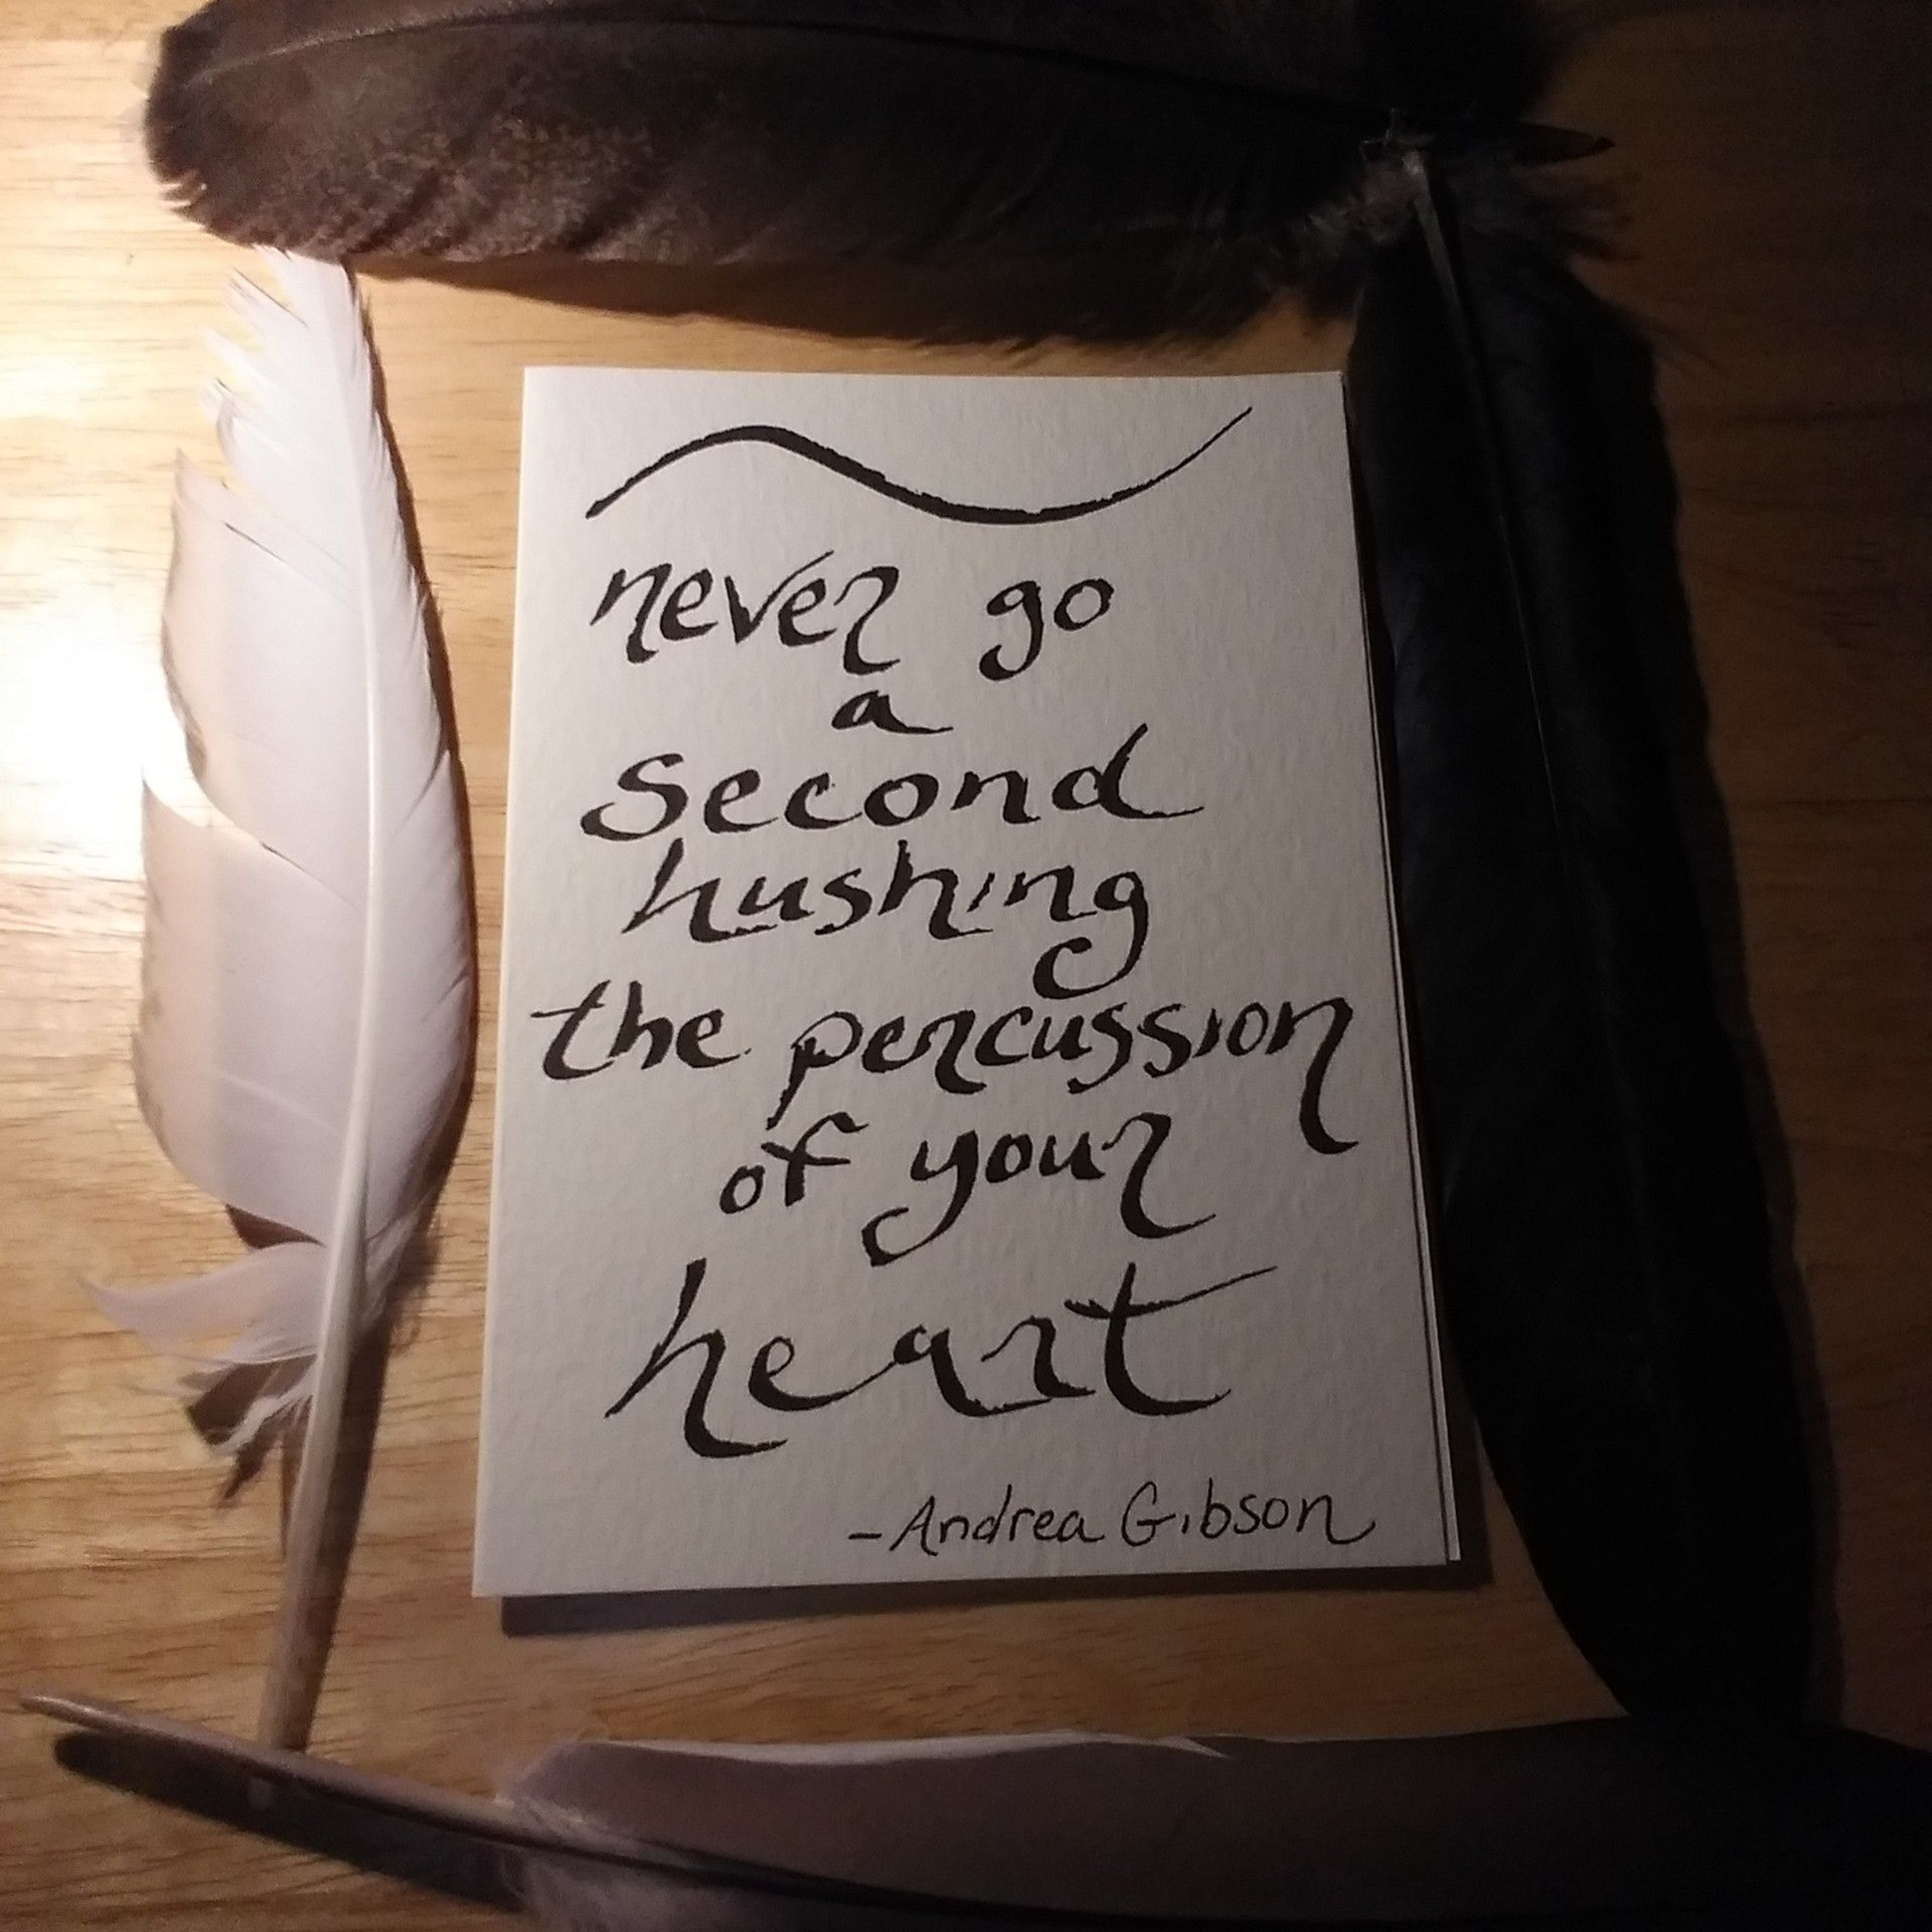 never go
a
second
hushing
the percussion
of your
heart
-Andrea Gibson